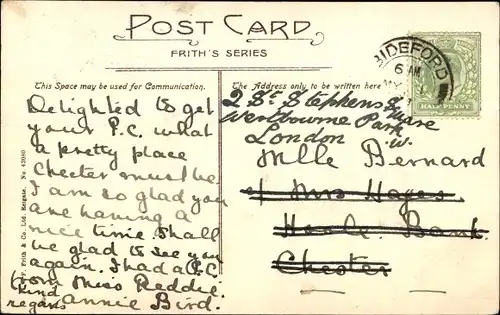 POST CARD
FRITH'S SERIES
This Space may be used for Communication.
The Address only to be written here
BIDEFORD
6 AM
MY
HALFPENNY
Delighted to get
your P.C. what
a pretty place
Chester must be.
I am so glad you
are having a
nice time. Shall
be glad to see you
again. I had a P.C.
from Miss Reddie.
Kind
regards
Annie Bird.
2 St Stephens Square
Westbourne Park
London W.
Mlle Bernard
c/o Mrs Hayes.
Hoole Bank
Chester
F. Frith & Co. Ltd. Reigate. No.